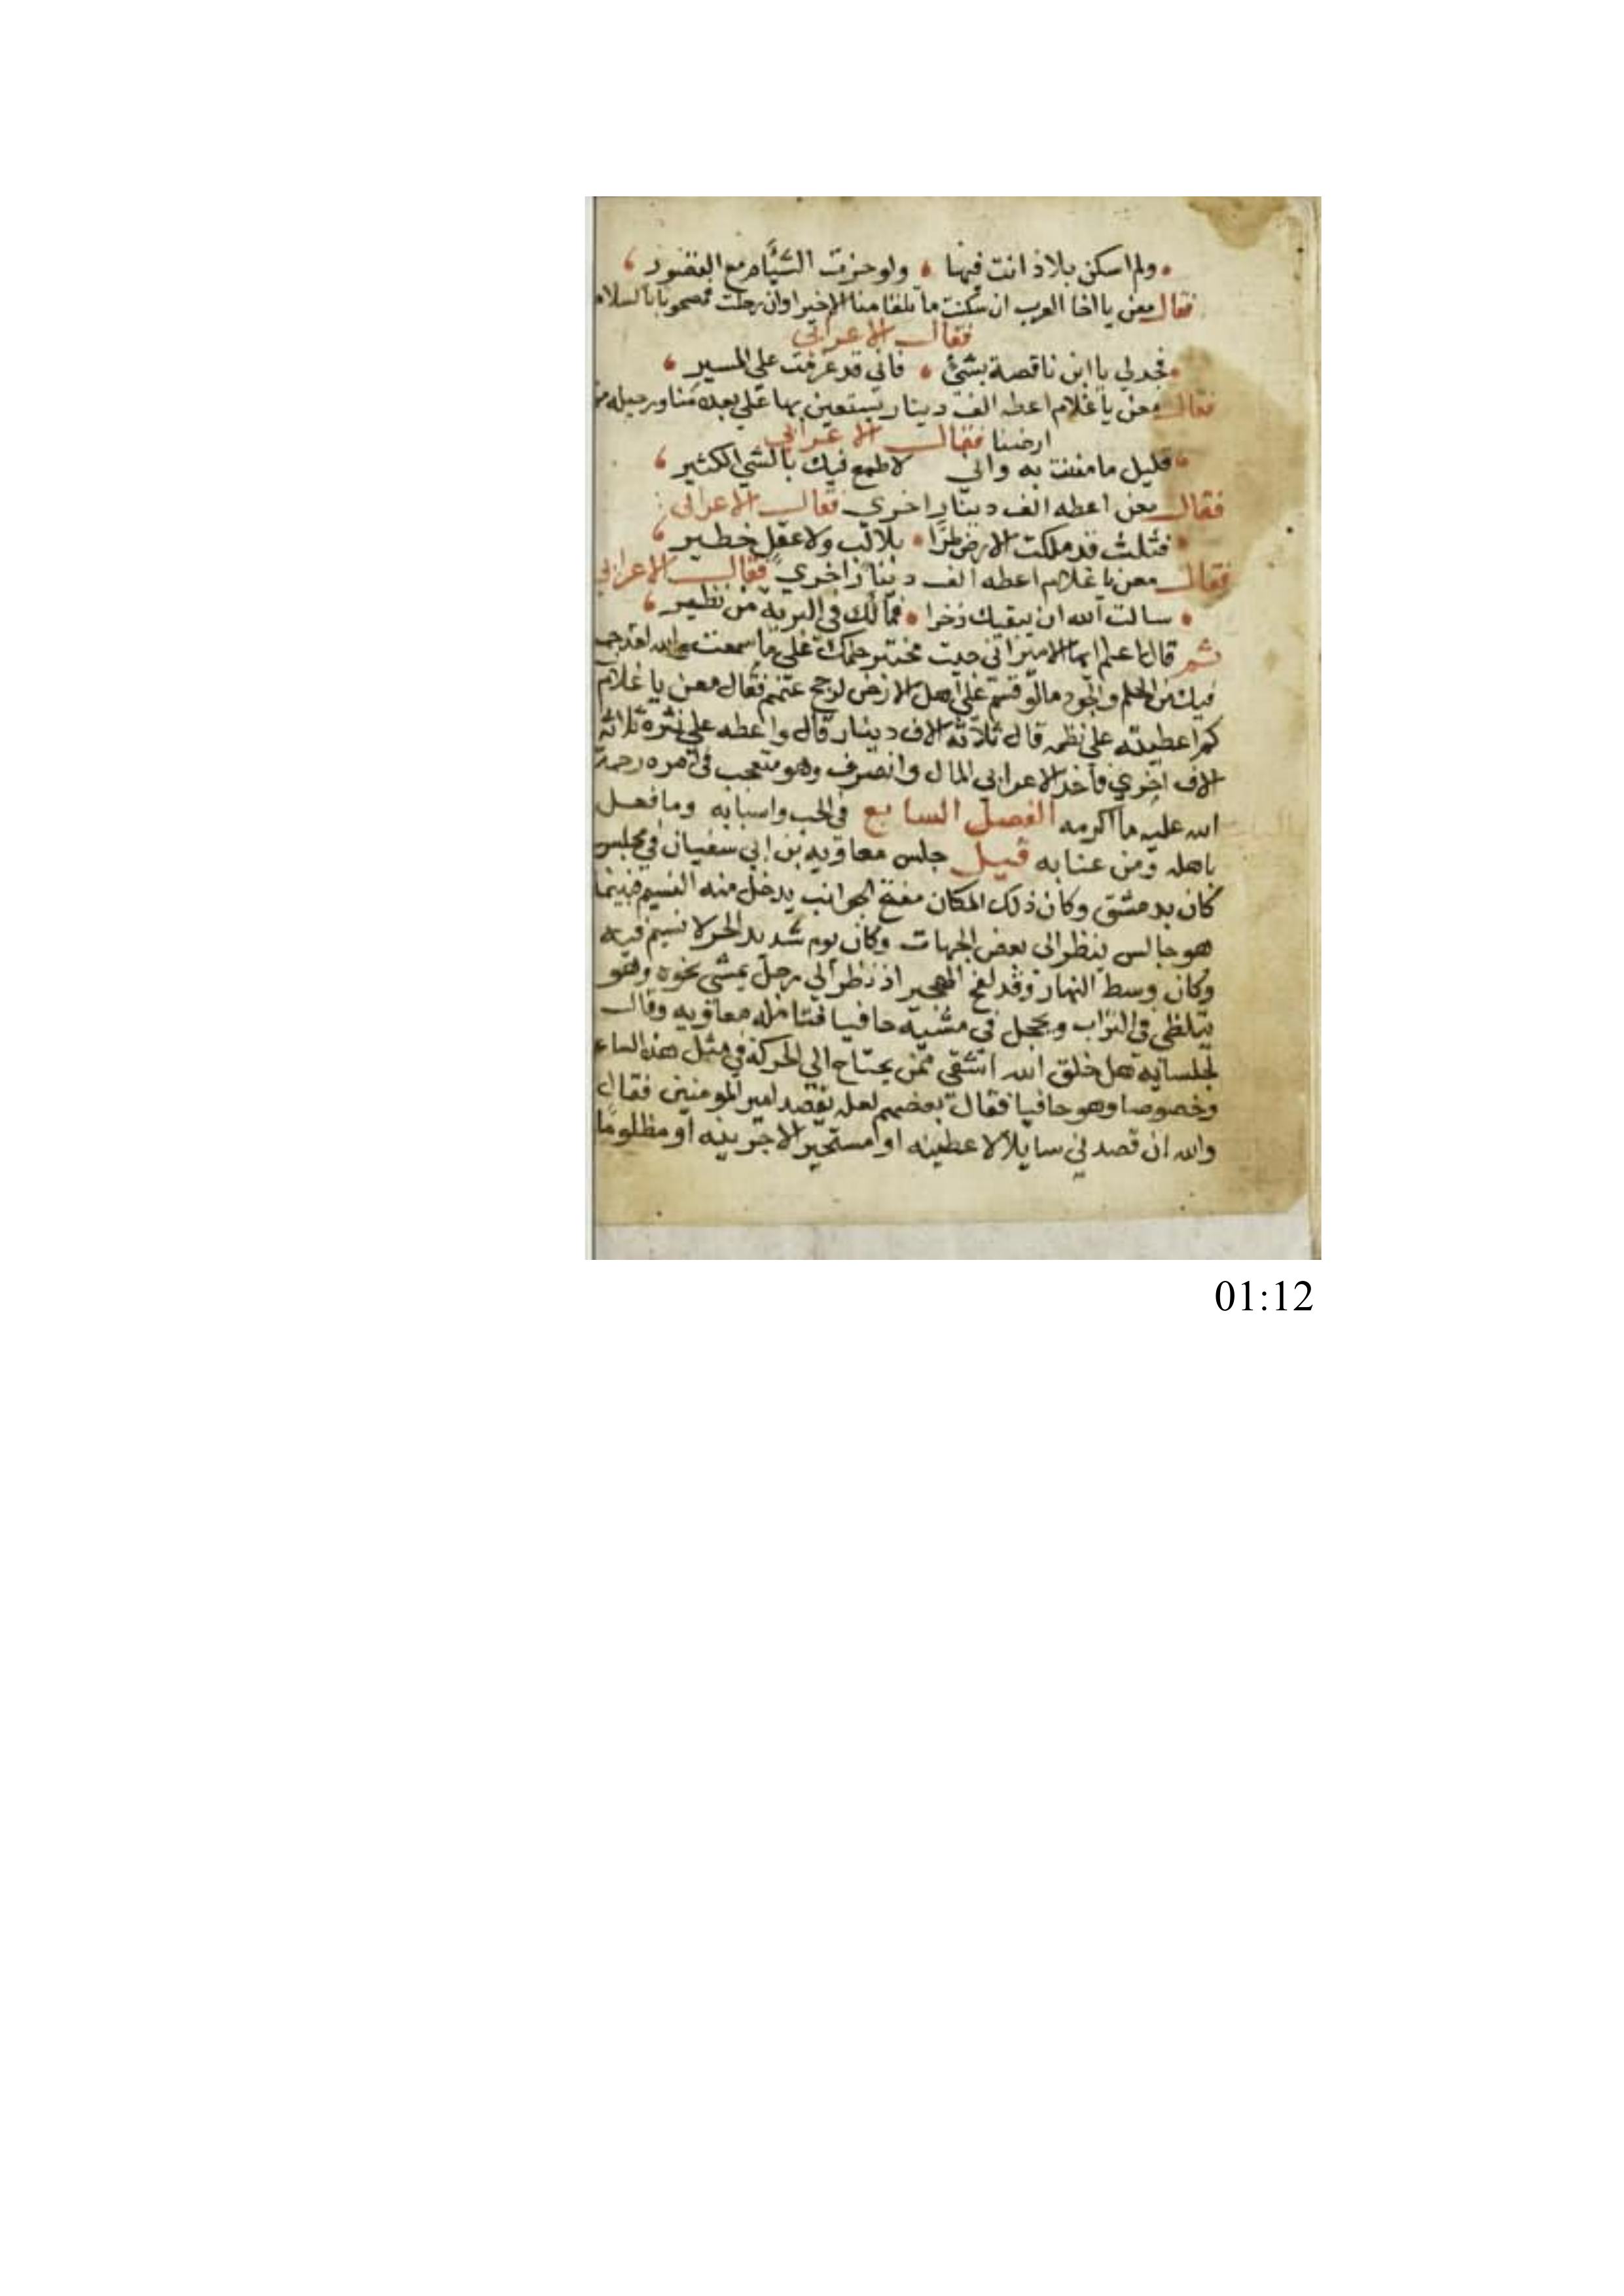 ولم اسكن بلاذ انت فيها ولو حزت الشيام مع الغضور
فقال معن يا اخا العرب ان سكنت ما تلقا منا الا خيرا وان رحلت فمصحوبا بالسلام
فقال الاعرابي
فجد لي يا ابن ناقصة بشئ فاني قد عزمت علي المسير
فقال معن يا غلام اعطه الف دينار يستعين بها علي بعده منا ورحيله من
ارضنا فقال الاعرابي
قليل ما مننت به واني لاطمع فيك بالشي الكثير
فقال معن اعطه الف دينار اخري فقال الاعرابي
فثلث قد ملكت الارض طرًا بلا لب ولا عقل خطير
فقال معن يا غلام اعطه الف دينار اخري فقال الاعرابي
سالت الله ان يبقيك ذخرا فما لك في البرية من نظير
ثم قال اعلم ايها الامير اني جيت مختبر حلمك علي ما سمعت والله لقد جمع
فيك من الحلم والجود ما لو قسم علي اهل الارض لرجح عنهم فقال معن يا غلام
كم اعطيته علي نظمه قال ثلاثة الاف دينار قال واعطه علي نثره ثلاثة
الاف اخري فاخذ الاعرابي المال وانصرف وهو متعجب في امره رحمة
الله عليه ما اكرمه الفصل السابع في الحب واسبابه وما فعل
باهله ومن عنا به قيل جلس معاويه بن ابي سفيان في مجلس
كان بدمشق وكان ذلك المكان مفتح الجوانب يدخل منه النسيم فبينما
هو جالس ينظر الى بعض الجهات وكان يوم شديد الحر لا نسيم فيه
وكان وسط النهار وقد لفح الهجير اذ نظر الي رجل يمشي نحوه وهو
يتلظي في التراب ويحجل في مشيه حافيا فتامله معاويه وقال
لجلسايه هل خلق الله اشقي ممن يحتاج الي الحركة في مثل هذه الساعه
وخصوصا وهو حافيا فقال بعضهم لعله يقصد امير المومنين فقال
والله ان قصدني سايلا لاعطينه او مستجير لاجرينه او مظلومًا
01:12